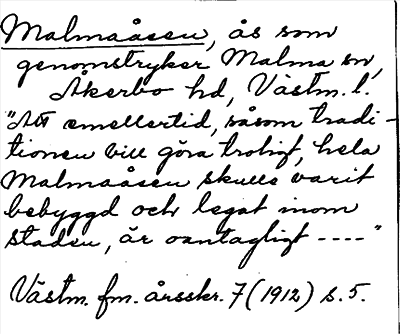 Malmaåsen, ås som
genomstryker Malma sn,
Åkerbo hd, Västm. l.
"Att emellertid, såsom tradi-
tionen vill göra troligt, hela
Malmaåsen skulle varit
bebyggd och legat inom
staden, är oantagligt ----"
Västm. fm. årsskr. 7 (1912) s. 5.